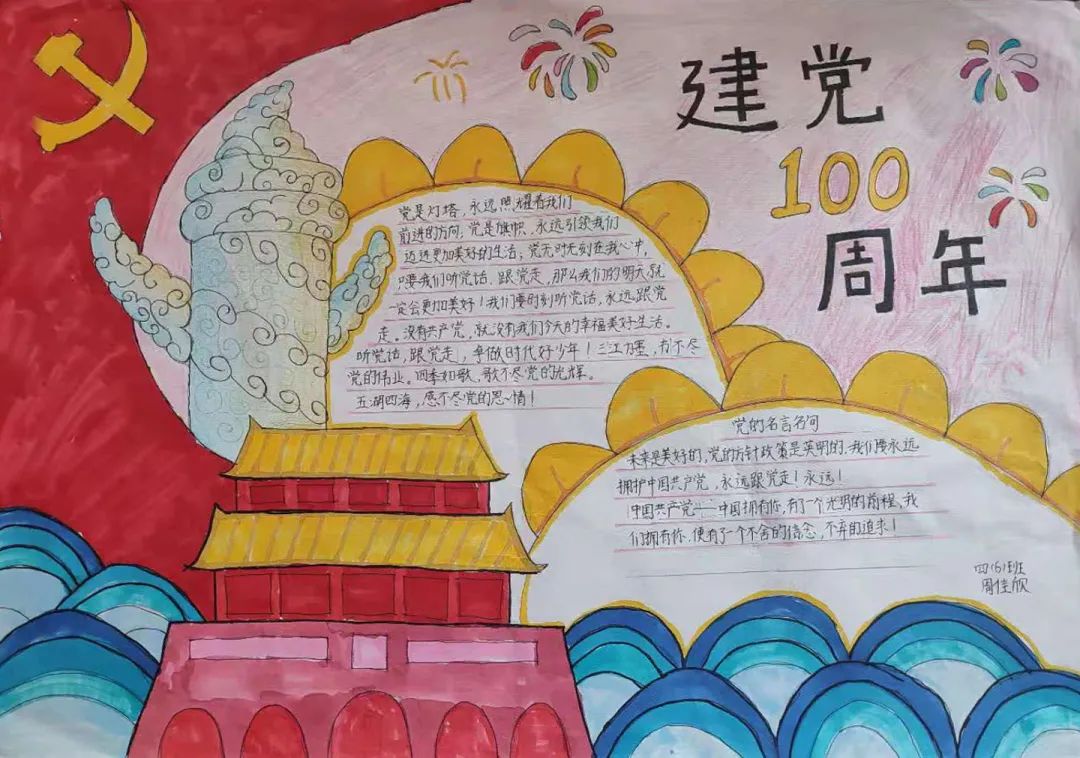 建党
100
周年
党是灯塔，永远照耀着我们
前进的方向，党是旗帜，永远引领我们
迈进更加美好的生活；党无时无刻在我心中，
只要我们听党话、跟党走，那么我们的明天就
一定会更加美好！我们要时刻听党话，永远跟党
走。没有共产党，就没有我们今天的幸福美好生活。
听党话，跟党走，争做时代好少年！三江为墨，书不尽
党的伟业。四季如歌，歌不尽党的光辉。
五湖四海，感不尽党的恩情！
党的名言名句
未来是美好的，党的方针政策是英明的，我们要永远
拥护中国共产党，永远跟党走！永远！
中国共产党——中国拥有你，有了一个光明的前程，我
们拥有你，便有了一个不舍的信念，不弃的追求！
四(6)班
周佳欣